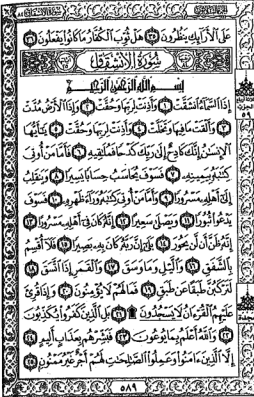 عَلَى ٱلْأَرَآئِكِ يَنظُرُونَ ٣٥ هَلْ ثُوِّبَ ٱلْكُفَّارُ مَا كَانُوا۟ يَفْعَلُونَ ٣٦
سُورَةُ ٱلِانشِقَاقِ
بِسْمِ ٱللَّهِ ٱلرَّحْمَٰنِ ٱلرَّحِيمِ
إِذَا ٱلسَّمَآءُ ٱنشَقَّتْ ١ وَأَذِنَتْ لِرَبِّهَا وَحُقَّتْ ٢ وَإِذَا ٱلْأَرْضُ مُدَّتْ
٣ وَأَلْقَتْ مَا فِيهَا وَتَخَلَّتْ ٤ وَأَذِنَتْ لِرَبِّهَا وَحُقَّتْ ٥ يَٰٓأَيُّهَا
ٱلْإِنسَٰنُ إِنَّكَ كَادِحٌ إِلَىٰ رَبِّكَ كَدْحًا فَمُلَٰقِيهِ ٦ فَأَمَّا مَنْ أُوتِىَ
كِتَٰبَهُۥ بِيَمِينِهِۦ ٧ فَسَوْفَ يُحَاسَبُ حِسَابًا يَسِيرًا ٨ وَيَنقَلِبُ
إِلَىٰٓ أَهْلِهِۦ مَسْرُورًا ٩ وَأَمَّا مَنْ أُوتِىَ كِتَٰبَهُۥ وَرَآءَ ظَهْرِهِۦ ١٠ فَسَوْفَ
يَدْعُوا۟ ثُبُورًا ١١ وَيَصْلَىٰ سَعِيرًا ١٢ إِنَّهُۥ كَانَ فِىٓ أَهْلِهِۦ مَسْرُورًا ١٣
إِنَّهُۥ ظَنَّ أَن لَّن يَحُورَ ١٤ بَلَىٰٓ إِنَّ رَبَّهُۥ كَانَ بِهِۦ بَصِيرًا ١٥ فَلَآ أُقْسِمُ
بِٱلشَّفَقِ ١٦ وَٱلَّيْلِ وَمَا وَسَقَ ١٧ وَٱلْقَمَرِ إِذَا ٱتَّسَقَ ١٨
لَتَرْكَبُنَّ طَبَقًا عَن طَبَقٍ ١٩ فَمَا لَهُمْ لَا يُؤْمِنُونَ ٢٠ وَإِذَا قُرِئَ
عَلَيْهِمُ ٱلْقُرْءَانُ لَا يَسْجُدُونَ ۩ ٢١ بَلِ ٱلَّذِينَ كَفَرُوا۟ يُكَذِّبُونَ
٢٢ وَٱللَّهُ أَعْلَمُ بِمَا يُوعُونَ ٢٣ فَبَشِّرْهُم بِعَذَابٍ أَلِيمٍ ٢٤
إِلَّا ٱلَّذِينَ ءَامَنُوا۟ وَعَمِلُوا۟ ٱلصَّٰلِحَٰتِ لَهُمْ أَجْرٌ غَيْرُ مَمْنُونٍۭ ٢٥
٥٨٩